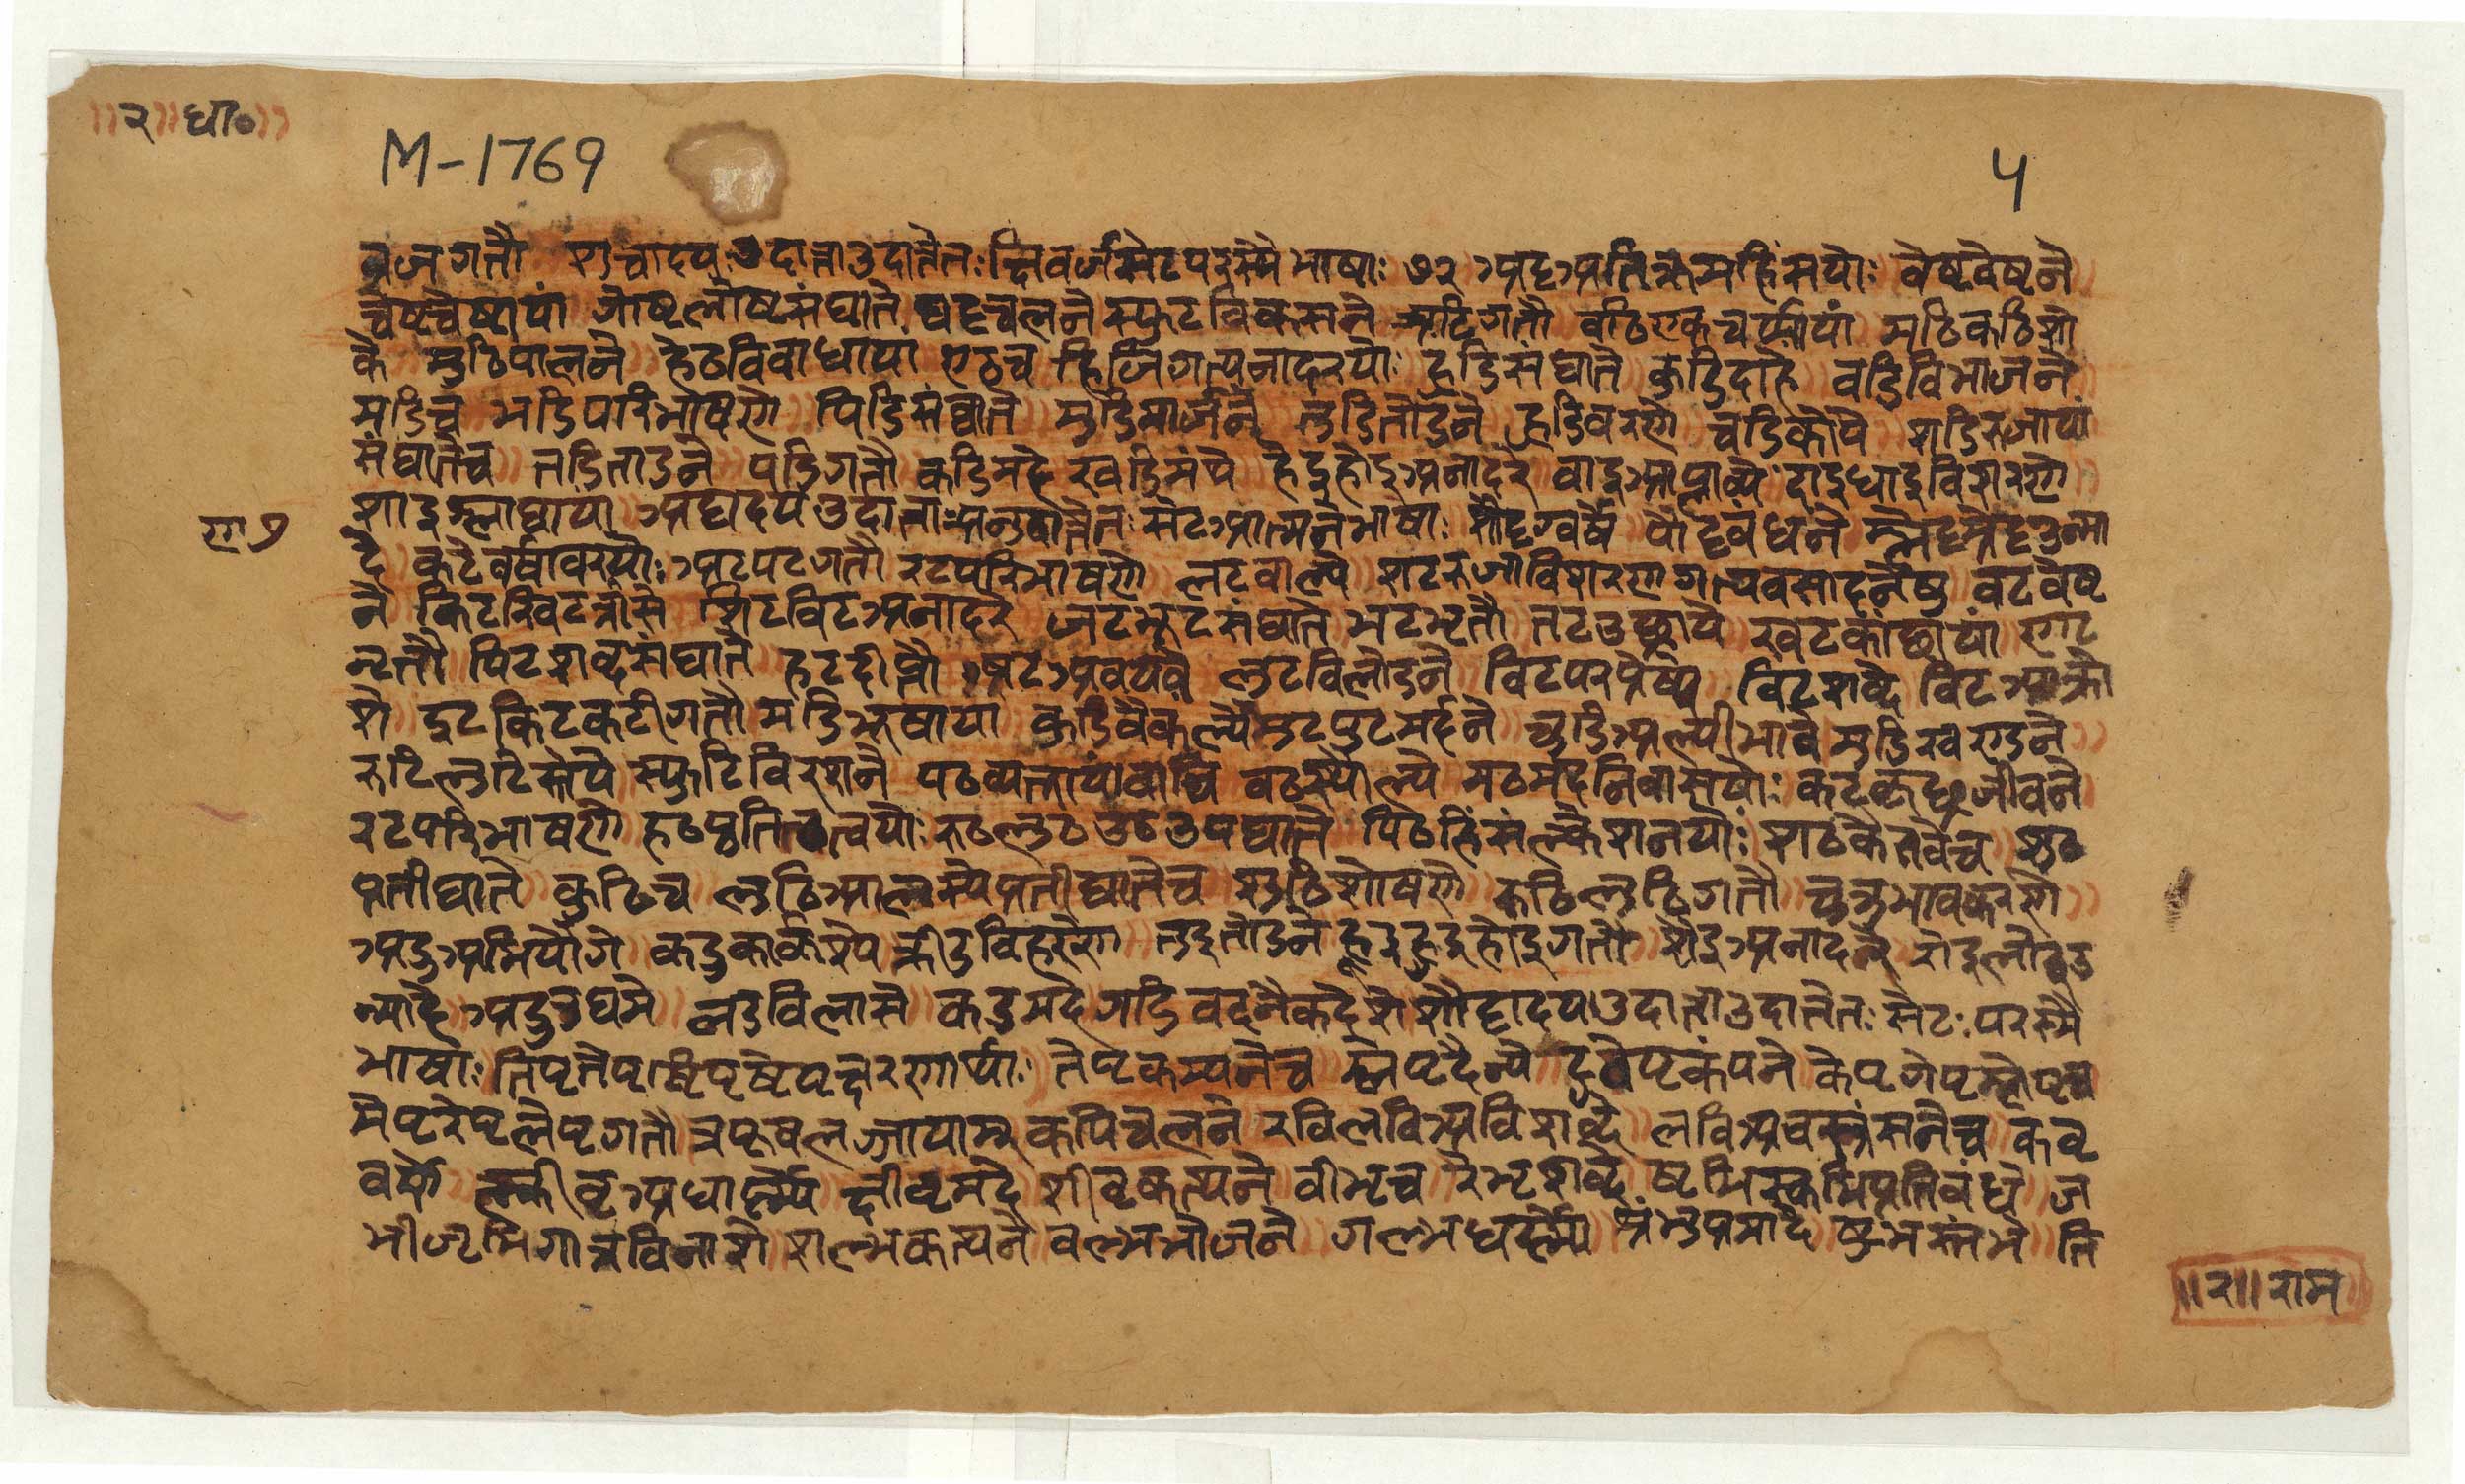 ॥२॥ धा०॥
M-1769
५
व्रज गतौ शुचादय उदात्ता उदात्तेतः क्षिवर्जं सेट परस्मै भाषाः ७२ अट्ट अतिक्रमहिंसयोः वेष्ट वेष्टने
चेष्ट चेष्टायां गोष्ट लोष्ट संघाते घट्ट चलने स्फुट विकसने अठि गतौ वठि एकचर्यायां मठि कठि शो
के मुठि पालने हेठ विबाधायां एठ च हिडि गत्यनादरयोः हुडि संघाते कुडि दाहे वडि विभाजने
मडि च भडि परिभाषणे पिडि संघाते मुडि मार्जने तुडि तोडने हुडि वरणे चडि कोपे शडि रुजायां
संघाते च तडि ताडने पडि गतौ कडि मदे खडि मंथे हेडृ होडृ अनादरे वाडृ आप्लाव्ये द्राडृ ध्राडृ विशरणे
शाडृ श्लाघायां अट्टादय उदात्ता अनुदात्तेतः सेट आत्मनेभाषाः शौटृ गर्वे यौटृ बंधने म्लेटृ म्रेटृ उन्मा
दे कटे वर्षावरणयोः अट पट गतौ रट परिभाषणे लट बाल्ये शट रुजाविशरणगत्यवसादनेषु वट वेष्ट
ने किट खिट त्रासे शिट षिट अनादरे जट झट संघाते भट भृतौ तट उच्छ्राये खट कांक्षायां णट
नृतौ पिट शब्दसंघाते हट दीप्तौ षट अवयवे लुट विलोडने चिट परप्रेष्ये विट शब्दे बिट आक्रो
शे इट किट कटी गतौ मडि भूषायां कुडि वैकल्ये मुट पुट मर्दने चुडि अल्पीभावे मुडि खण्डने
रुटि लुटि स्तेये स्फुटि विशरणे पठ व्यक्तायां वाचि वठ स्थौल्ये मठ मदनिवासयोः कठ कृच्छ्रजीवने
रट परिभाषणे हठ प्लुतिशठत्वयोः रुठ लुठ उठ उपघाते पिठ हिंसासंक्लेशनयोः शठ कैतवे च शुठ
प्रतीघाते कुठि च लुठि आलस्ये प्रतीघाते च शुठि शोषणे रुठि लुठि गतौ चुड्ड भावकरणे
अड्ड अभियोगे कड्ड कार्कश्ये क्रीडृ विहारे तुडृ तोडने हूडृ हुडृ होडृ गतौ रौडृ अनादरे रोडृ लोडृ उ
न्मादे अड उद्यमे लड विलासे कड मदे गडि वदनैकदेशे शौटादय उदात्ता उदात्तेतः सेटः परस्मै
भाषाः तिपृ तेपृ ष्टिपृ ष्टेपृ क्षरणार्थाः तेपृ कम्पने च ग्लेपृ दैन्ये टुवेपृ कंपने केपृ गेपृ ग्लेपृ च
मेपृ रेपृ लेपृ गतौ त्रपूष् लज्जायाम् कपि चलने रबि लबि अबि शब्दे लबि अवस्रंसने च कबृ
वर्णे क्लीबृ अधार्ष्ट्ये क्षीबृ मदे शीभृ कत्थने वीभृ च रेभृ शब्दे ष्टभि स्कभि प्रतिबंधे ज
भी जृभि गात्रविनामे शल्भ कत्थने वल्भ भोजने गल्भ धार्ष्ट्ये श्रंभु प्रमादे ष्टुभ स्तंभे ति
ण७
॥२॥ राम